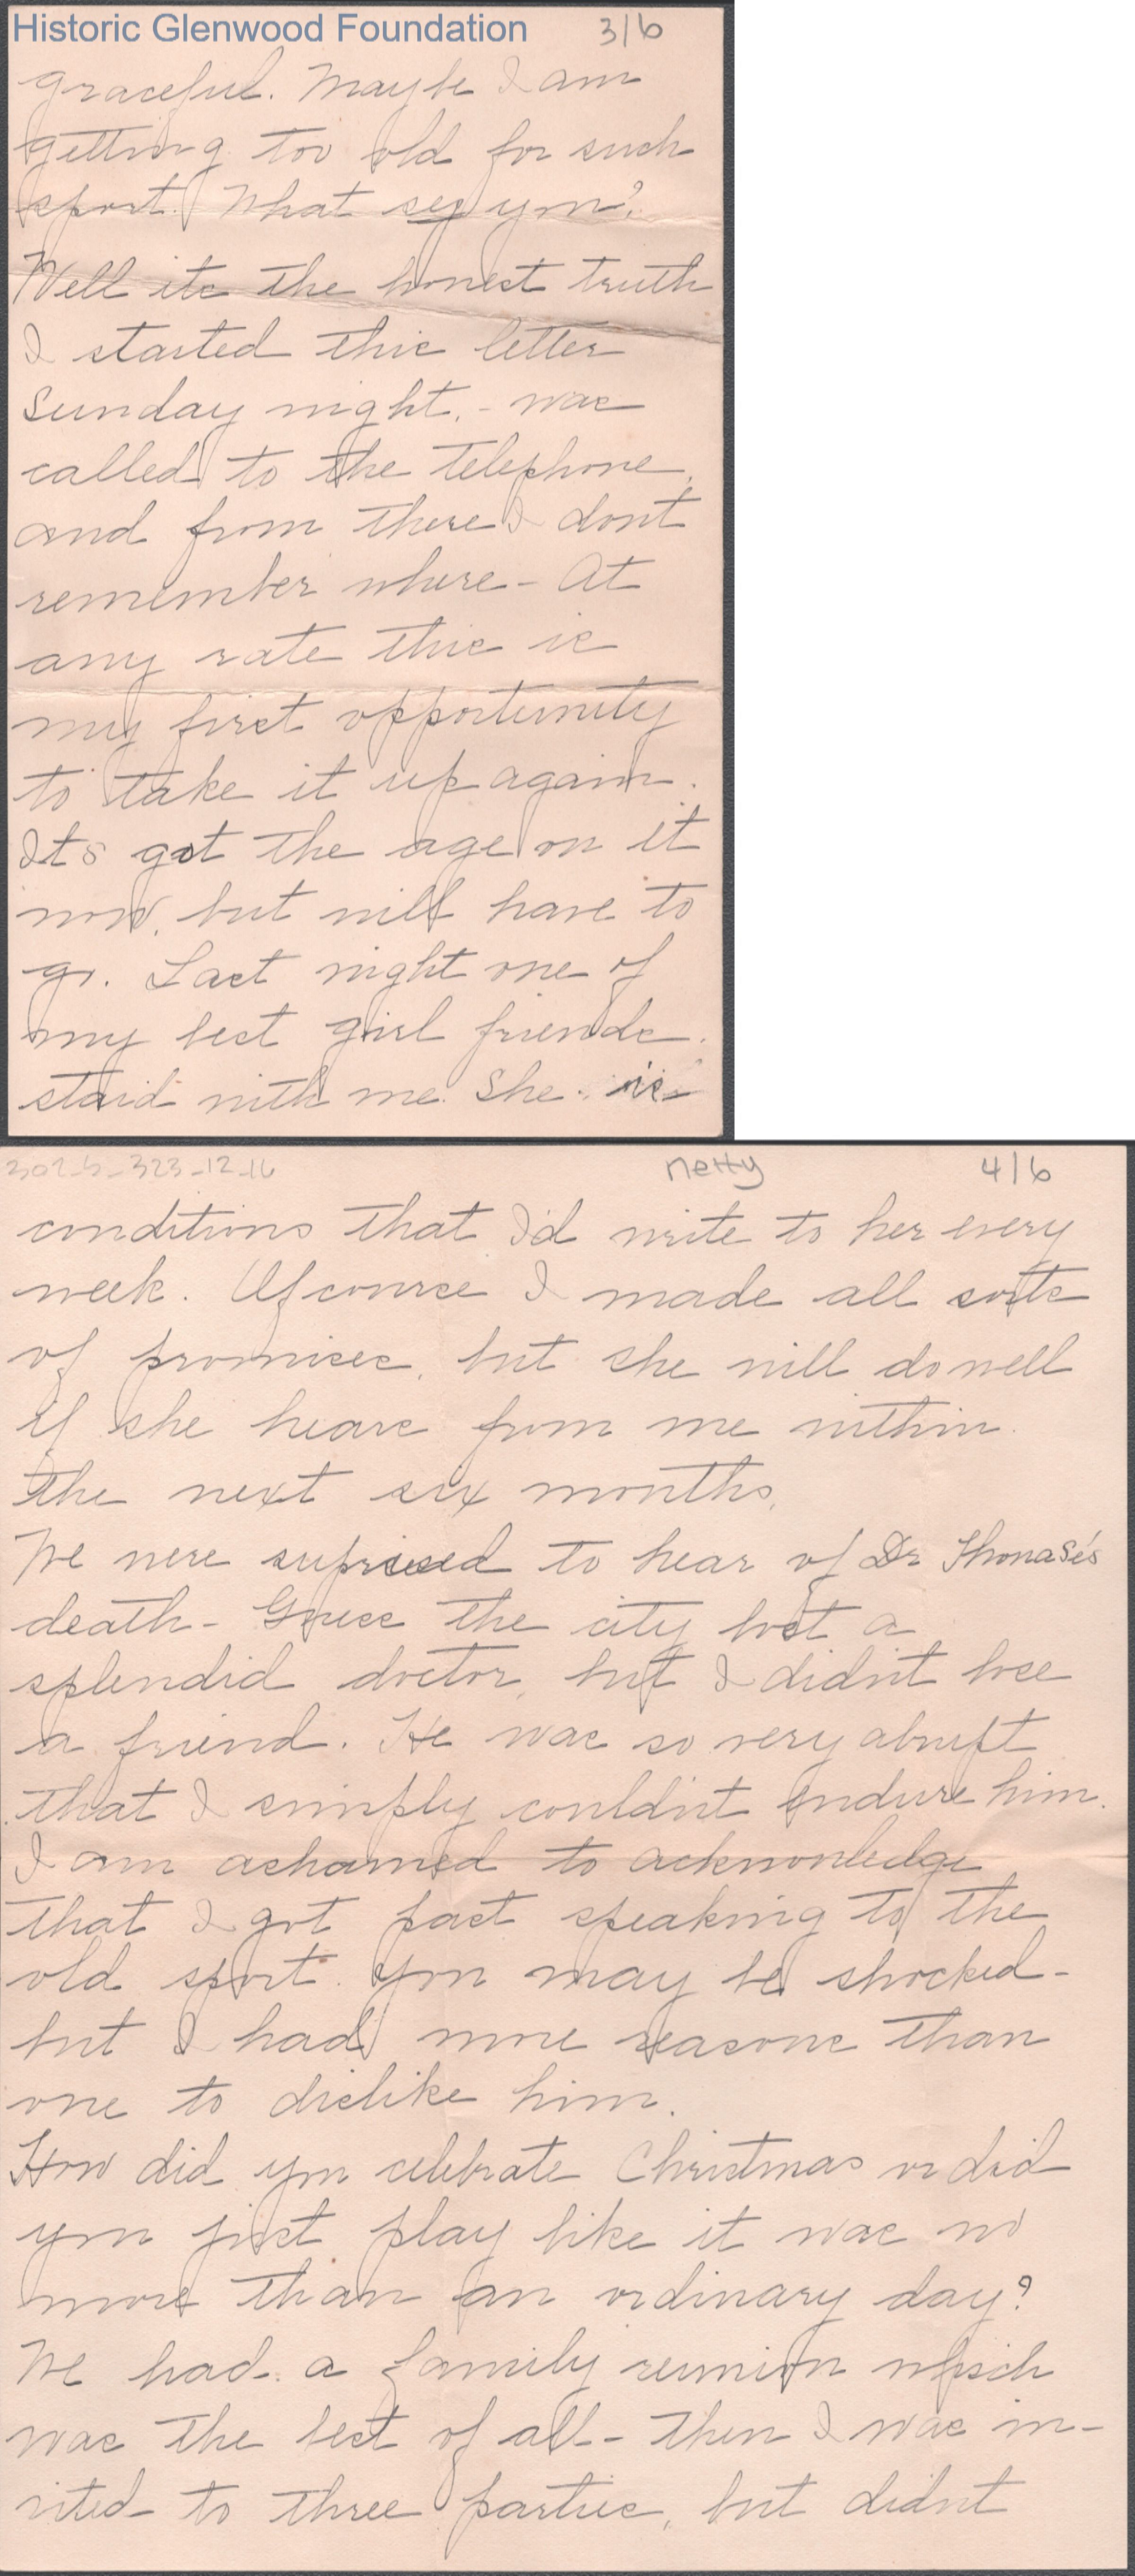 Historic Glenwood Foundation 3/6
graceful. Maybe I am
getting too old for such
sport. What say you?
Well its the honest truth
I started this letter
Sunday night, - was
called to the telephone,
and from there I dont
remember where - At
any rate this is
my first opportunity
to take it up again.
Its got the age on it
now, but will have to
go. Last night one of
my best girl friends.
staid with me. She is
302-b-323-12-16 netty 4/6
conditions that I'd write to her every
week. Of course I made all sorts
of promises, but she will do well
if she hears from me within
the next six months.
We were suprised to hear of Dr
death - Guess the city lost a
splendid doctor, but I didn't lose
a friend. He was so very abrupt
that I simply couldn't endure him.
I am ashamed to acknowledge
that I got past speaking to the
old sport. You may be shocked -
but I had more reasons than
one to dislike him.
How did you celebrate Christmas or did
you just play like it was no
more than an ordinary day?
We had a family reunion which
was the best of all - then I was in-
vited to three parties, but didnt